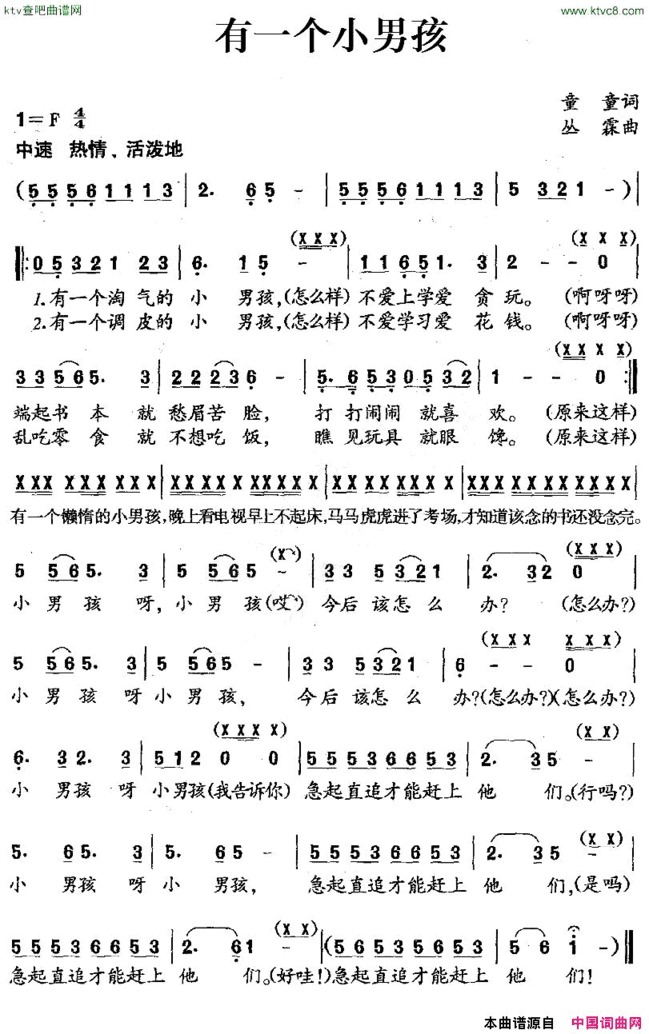 ktv查吧曲谱网
www.ktvc8.com
有一个小男孩
童 童词
1=F 4/4
丛 霖曲
中速 热情、活泼地
(5 5 5 6 1 1 1 3 | 2. 6 5 - | 5 5 5 6 1 1 1 3 | 5 3 2 1 -)|
(X X X) (X X X)
‖: 0 5 3 2 1 2 3 | 6. 1 5 - | 1 1 6 5 1. 3 | 2 - - 0 |
1.有一个淘 气的 小 男孩,(怎么样) 不爱上学爱 贪玩。 (啊呀呀)
2.有一个调 皮的 小 男孩,(怎么样) 不爱学习爱 花钱。 (啊呀呀)
(X X X X)
3 3 5 6 5. 3 | 2 2 2 3 6 - | 5. 6 5 3 0 5 3 2 | 1 - - 0 :‖
端起书 本 就 愁眉苦 脸, 打 打闹闹 就喜 欢。 (原来这样)
乱吃零 食 就 不想吃 饭, 瞧 见玩具 就眼 馋。 (原来这样)
X X X X X X X X X X | X X X X X X X X X X X | X X X X X X X X | X X X X X X X X X X X |
有一个懒惰的小男孩,晚上看电视早上不起床,马马虎虎进了考场,才知道该念的书还没念完。
(X) (X X X)
5 5 6 5. 3 | 5 5 6 5 - | 3 3 5 3 2 1 | 2. 3 2 0 |
小 男 孩 呀, 小 男 孩(哎) 今后 该怎 么 办? (怎么办?)
(X X X X X X)
5 5 6 5. 3 | 5 5 6 5 - | 3 3 5 3 2 1 | 6 - - 0 |
小 男 孩 呀 小 男 孩, 今后 该怎 么 办?(怎么办?)(怎么办?)
(X X X X) (X X)
6. 3 2. 3 | 5 1 2 0 0 | 5 5 5 3 6 6 5 3 | 2. 3 5 - |
小 男孩 呀 小男孩(我告诉你) 急起直追才能赶上 他 们。(行吗?)
(X X)
5. 6 5. 3 | 5. 6 5 - | 5 5 5 3 6 6 5 3 | 2. 3 5 - |
小 男孩 呀 小 男孩, 急起直追才能赶上 他 们,(是吗)
(X X)
5 5 5 3 6 6 5 3 | 2. 6 1 - | (6 5 5 3 6 6 5 3 | 5 6 i -)‖
急起直追才能赶上 他 们。(好哇!)急起直追才能赶上 他 们!
本曲谱源自 中国词曲网